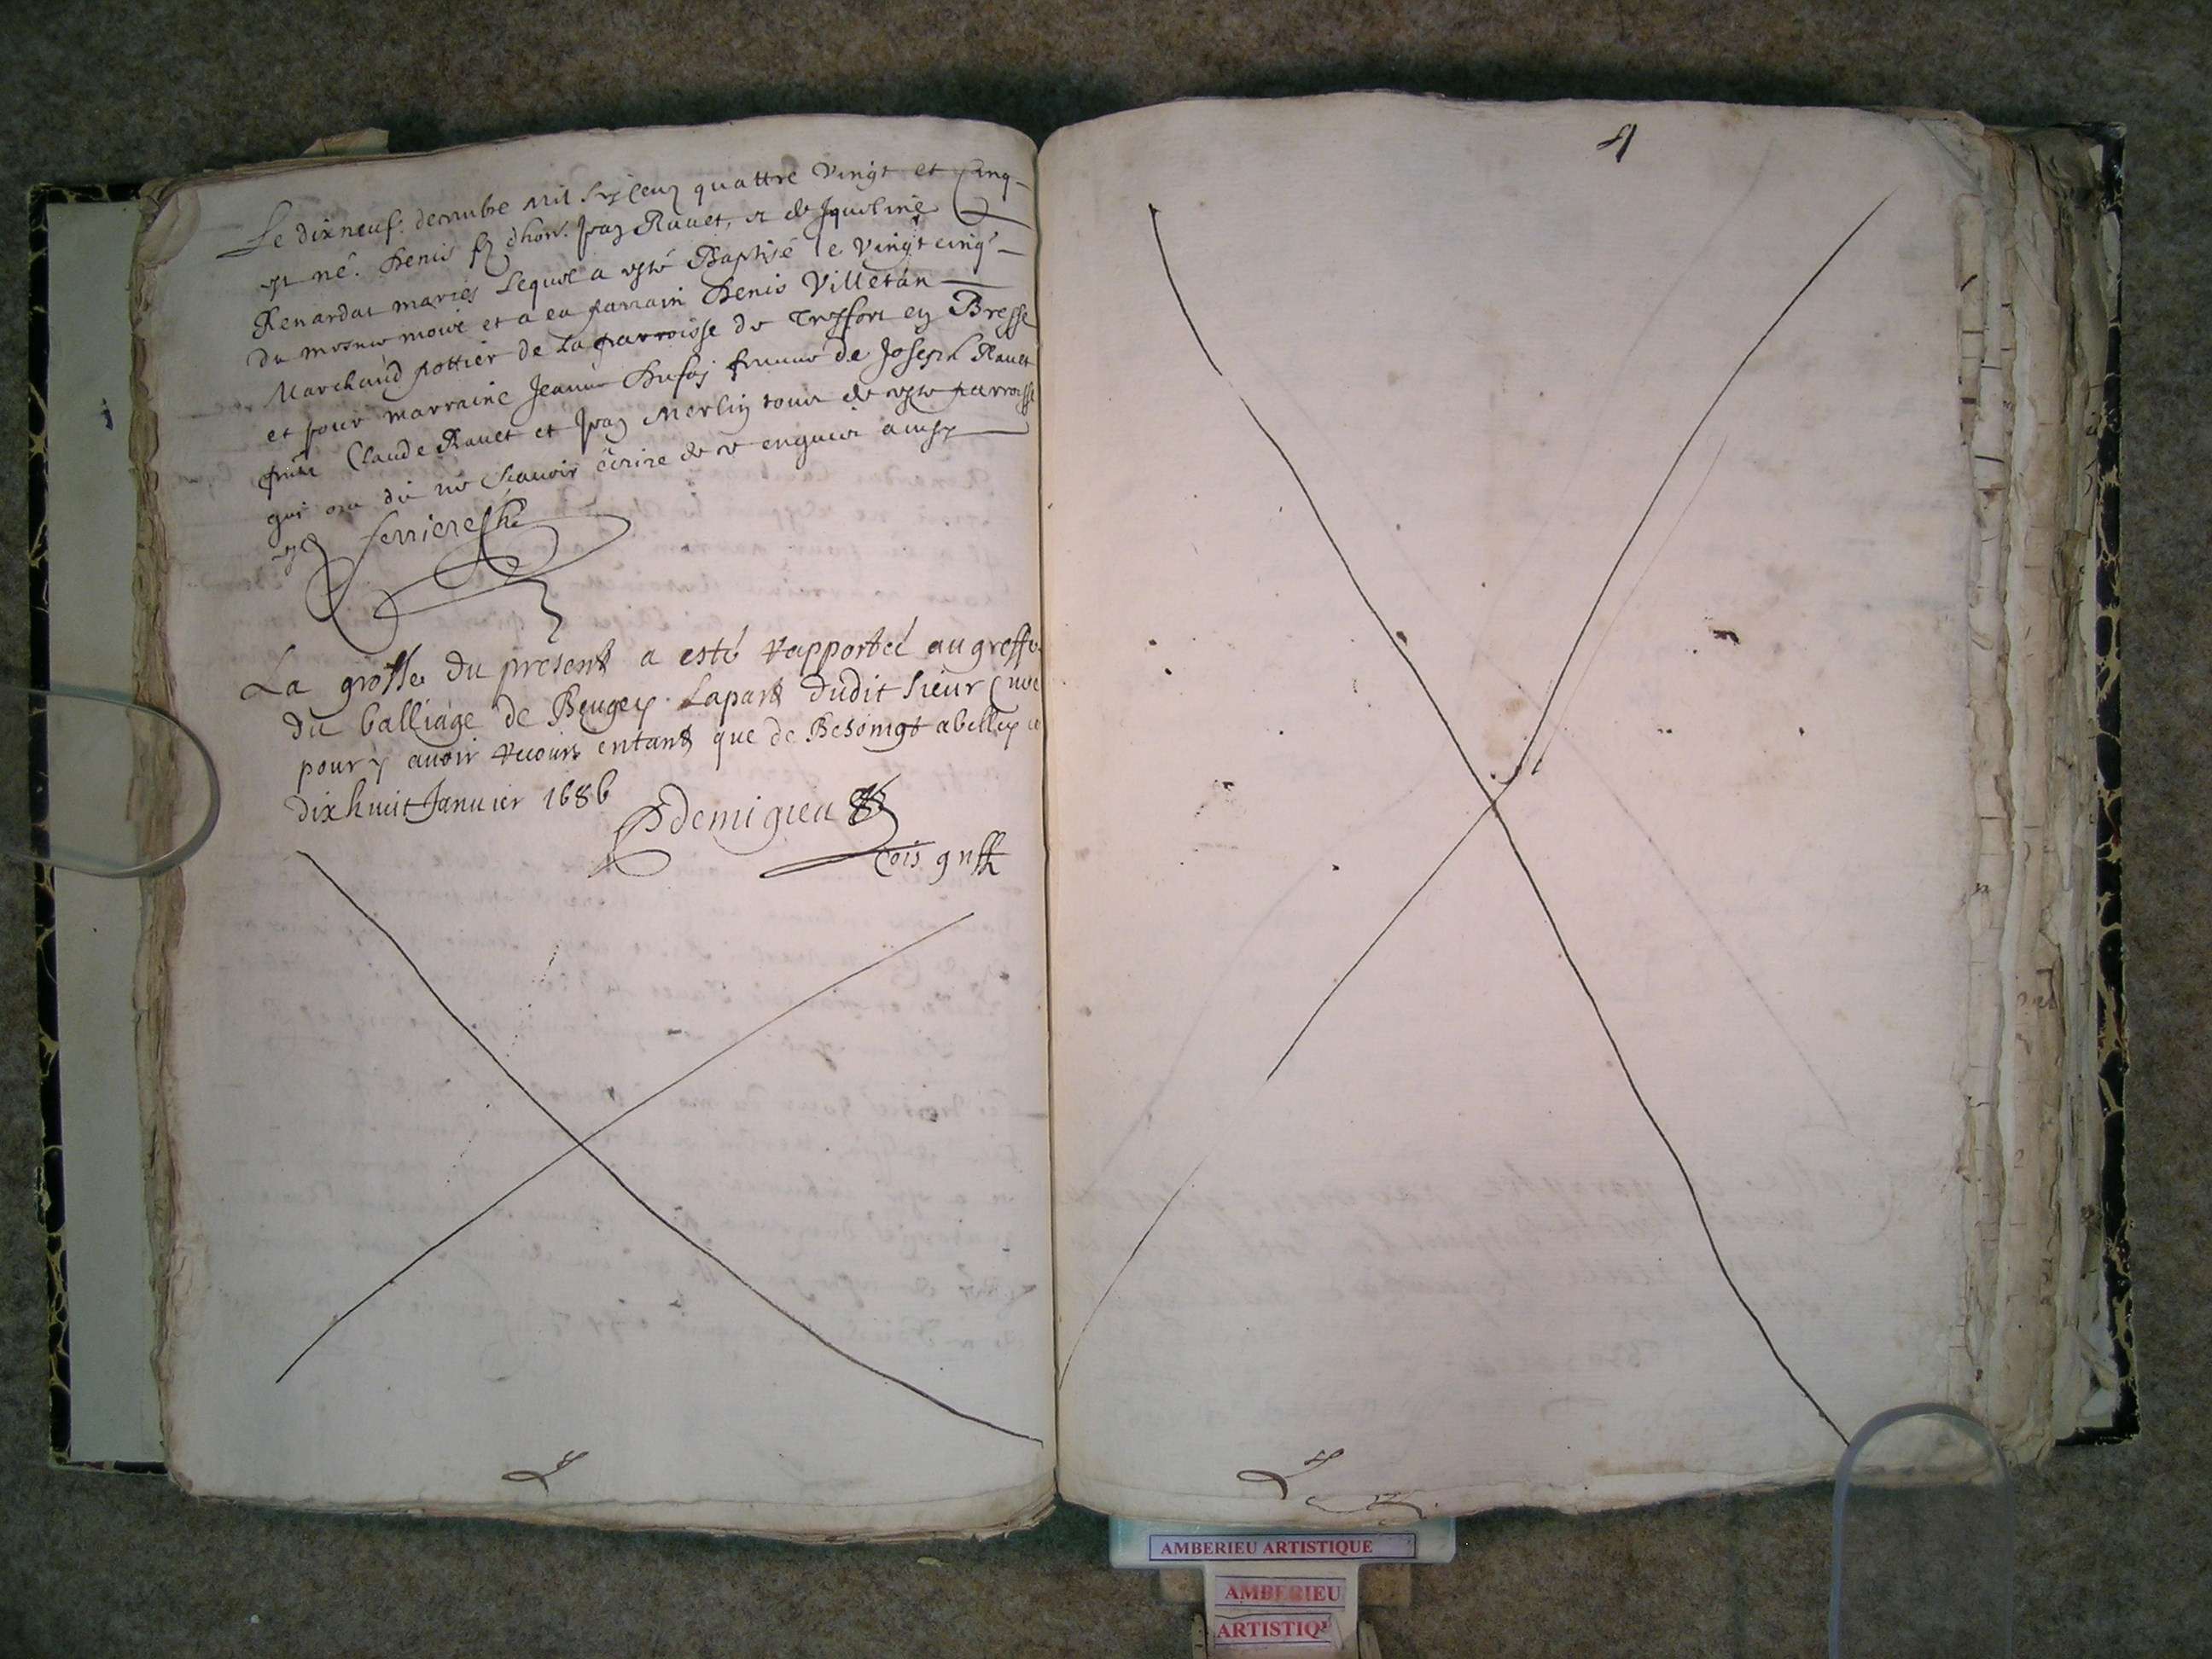 Le dixneuf: decembre mil six cens quattre vingt et Cinq
est né. Denis fs d'hon. Jean Rauet, et de Jqueline
Renardat mariés Lequel a esté Baptisé le vingt cinq
du mesme mois et a eu parrain Denis Villetan
Marchand pottier de la parroisse de Treffort en Bresse
et pour marraine Jeanne femme de Joseph Rauet
Claude Rauet et Jean Merlin tous de cette parroisse
qui ont dit ne scauoir écrire de ce enquis ainsy
ferriere
La grosse du present a esté rapportée au greffe
du balliage de Beugey Lapart dudit sieur Cure
pour y auoir recours entant que de Besoingt abelley ce
dixhuit Januier 1686
Demigieu
Cois greff
AMBERIEU ARTISTIQUE
AMBERIEU
ARTISTIQ